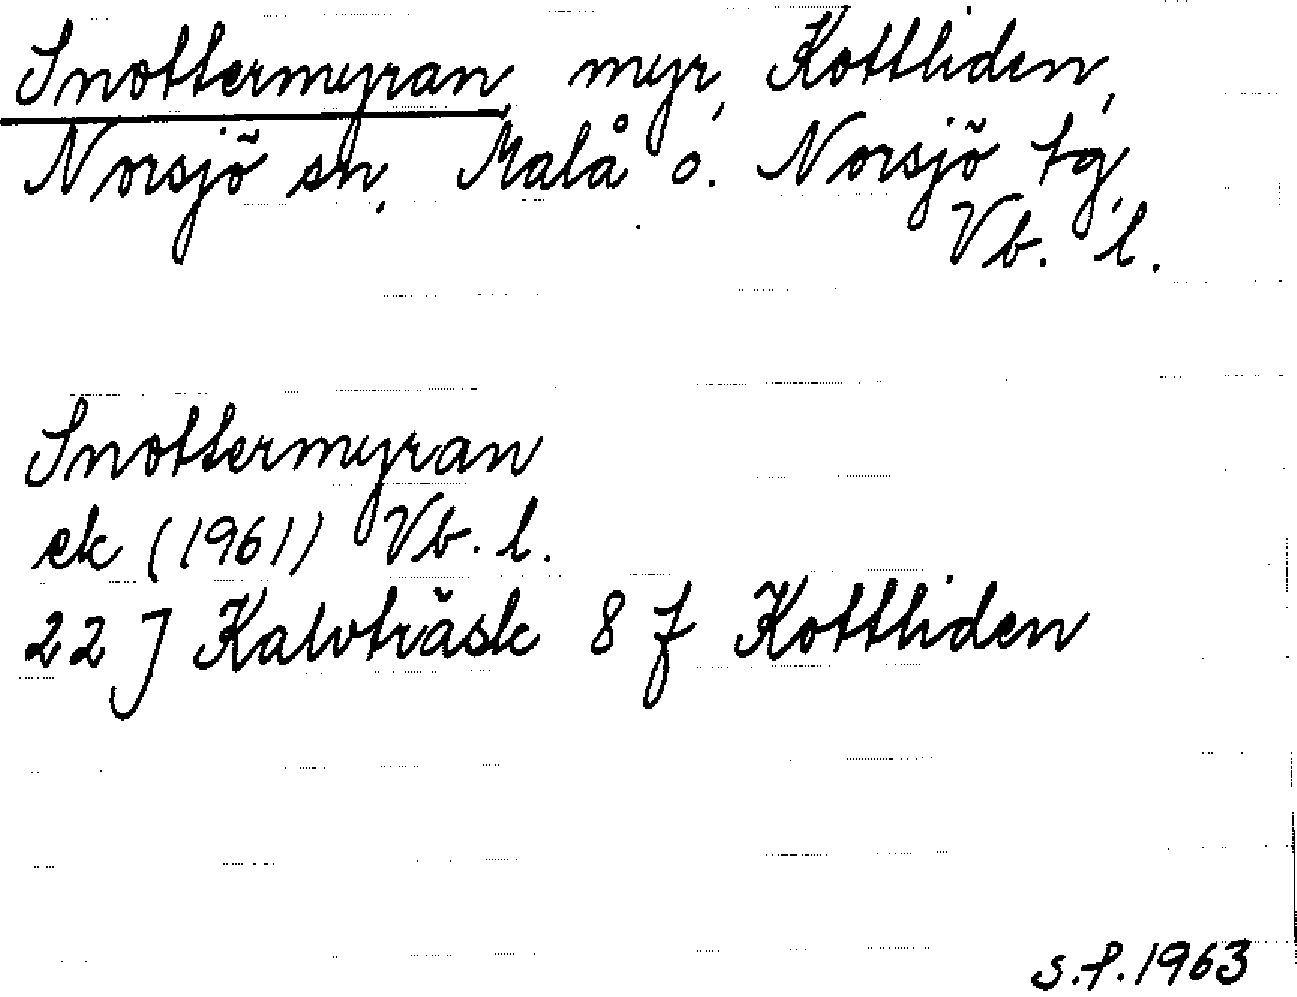 Snottermyran, myr, Kottliden,
Norsjö sn, Malå o. Norsjö tg,
Vb. l.
Snottermyran
ek (1961) Vb. l.
22 J Kalvträsk 8 f Kottliden
s.f. 1963